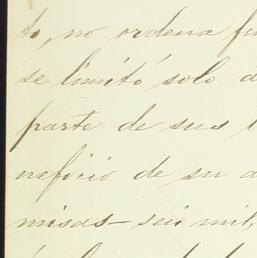 to, no ordena fu
se limitó solo a
parte de sus
neficio de su a
misas - seis mil,